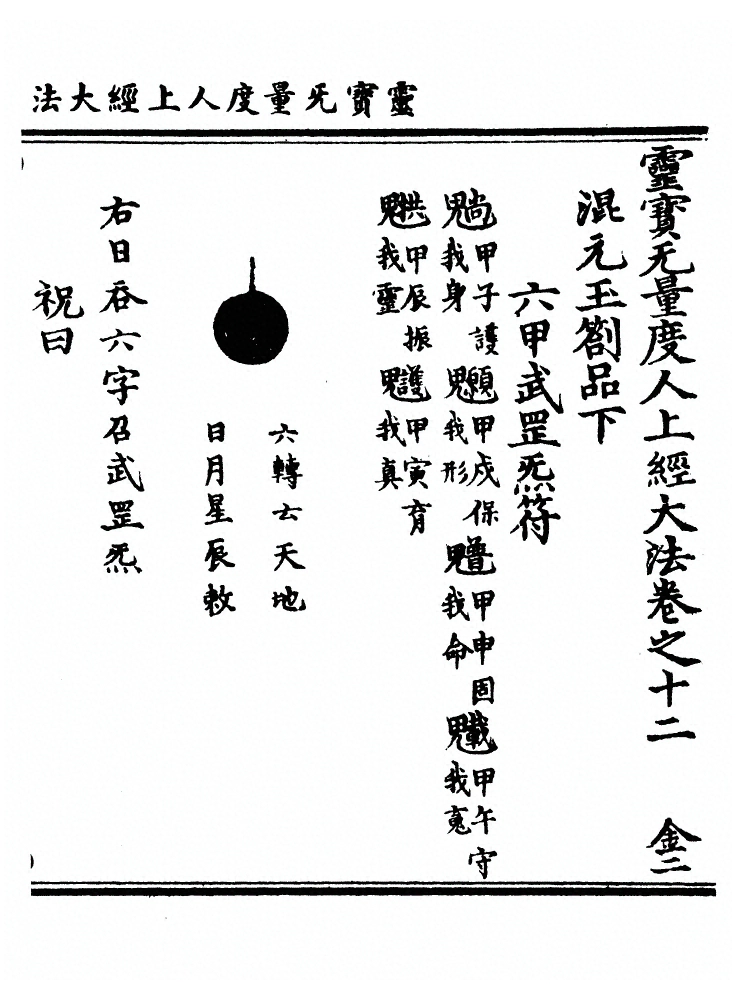 靈寶旡量度人上經大法
靈寶无量度人上經大法卷之十二 金二
混元玉劄品下
六甲武罡炁符
甲子護我身 甲戌保我形 甲申固我命 甲午守我䰟
甲辰振我靈 甲寅育我真
六轉云天地
日月星辰敕
右日吞六字召武罡炁
祝曰